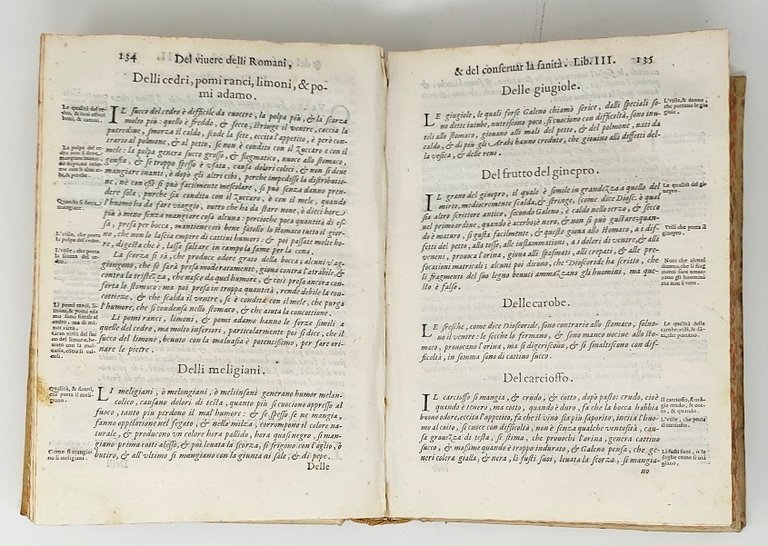 134 Del viuere delli Romani,
Delli cedri, pomi ranci, limoni, & po-
mi adamo.
IL succo del cedro è difficile da cuocere, la polpa più, & la scorza
molto più: quello è freddo, & secco, stringe il ventre, caccia la
putredine, smorza il caldo, scede la sete, eccita l'appetito, è però con-
trario allo stomaco, & al petto, se non è condito con il zuccaro e con il
mele: la polpa genera succo grosso, & flegmatico, nuoce allo stomaco,
gonfia, & se troppo spesso è vsata, causa dolori colici, & non si deue
mangiare inanti, ò dopò gli altri cibi, perche impedisse la distributio-
ne, nè con essi si può facilmente mescolare, si può senza danno pren-
dere sola, purche sia condita con il zuccaro, ò con il mele, quando
l'huomo hà da fare viaggio, outro che hà da stare noue, ò dieci hore,
più ò meno senza mangiare cosa alcuna: percioche poca quantità di es-
sa, presa per bocca, mantiene così bene satollo lo stomaco tutto il gior-
no, che non lo lascia empire di cattiui humori: & poi passate molte ho-
re, digesta che è, lassa saltare in campo la fame per la cena.
La scorza si sà, che produce odore grato della bocca; alcuni v'ag-
giongono, che se sarà presa moderatamente, gioua contra l'atrabile, &
contra la tristezza, che nasce da quel humore, & così presa ancora con-
forta lo stomaco: ma poi presa in troppa quantità, rende debile la con-
cottione, & che scalda il ventre, se è condita con il mele, che purga
l'humore, che si condensa nello stomaco, & che aiuta la concottione.
I pomi ranci, limoni, & pomi adamo hanno le forze simili à
quelle del cedro, ma molto inferiori, particolarmente poi si dice, che il
succo del limone, beuuto con la maluasia è potentissimo, per fare ori-
nare le pietre.
Delli meligiani.
LI meligiani, ò melongiani, ò meliinsani generano humor melan-
colico, causano dolori di testa, quanto più si cuociono appresso al
fuoco, tanto più perdono il mal'humore: & se spesso se ne mangia,
fanno oppilatione nel fegato, & nella milza, corrompono il colore na-
turale, & producono vn colore hora pallido, hora quasi negro, si man-
giano prima cotti alesso, & poi leuata la scorza, si frigono con l'oglio, ò
butiro, & all'vltimo si mangiano con la giunta di sale, & di pepe.
Delle
Qualità, & danni,
che porta il meli-
giano.
Come si mangi-
no li meligiani.
& del conseruar la sanità. Lib. III. 135
Delle giugiole.
LE giugiole, le quali forse Galeno chiamò serice, dalli speciali so-
no dette iuiube, nutriscono poco, si cuociono con difficoltà, sono inu-
tili allo stomaco, giouano alli mali del petto, & del polmone, nati da
calda, & di più gli Arabi hanno creduto, che giouano alli difetti del-
la vesica, & delle reni.
L'vtile, & danno,
che portano le giu-
giole.
Del frutto del ginepro.
IL grano del ginepro, il quale è simile in grandezza a quello del
mirto, mediocremente scalda, & stringe, (come dice Diosc. ò qual
sia altro scrittore antico, secondo Galeno, è caldo nello terzo, & secco
nel primo ordine, quando è acerbo, è nero, & non si può gustare: quan-
do è maturo, si gusta facilmente, & questo gioua allo stomaco, a i dif-
fetti del petto, alla tosse, alle inflammationi, a i dolori di ventre, & alli
veneni, prouoca l'orina, gioua alli spasmati, alli crepati, & alle pre-
focationi matricali; alcuni poi dicono, che Dioscoride ha scritto, che
li fragmenti del suo legno beuuti ammazzano gli huomini, ma que-
sto è falso.
Le qualità del gi-
nepro.
Vtili che porta il
ginepro.
Delle carobe.
LE fresche, come dice Dioscoride, sono contrarie allo stomaco, soluo-
no il ventre: le secche lo fermano, & sono manco nociue allo stoma-
co, prouocano l'orina, ma si digeriscono, & si smaltiscono con dif-
ficoltà, in somma sono di cattiuo succo.
Le qualità delle
carobe.
Del carcioffo.
IL carcioffo si mangia, & crudo, & cotto, dopò pasto: crudo, cioè
quando è tenero, ma cotto, quando è duro, fa che la bocca habbia
buono odore, eccita l'appetito, fa che il vino sia più saporito, incita l'huo-
mo al coito, si cuoce con difficoltà, non è senza qualche ventosità, cau-
sa grauezza di testa, si stima, che prouochi l'orina, genera cattiuo
succo, & massime quando è troppo indurato, & Galeno pensa, che ge-
neri colera gialla, & nera, li fusti suoi, leuata la scorza, si mangia-
no
Il carcioffo, si man-
gia crudo, & cot-
to, & quando.
L'vtile, che porta
il carcioffo.